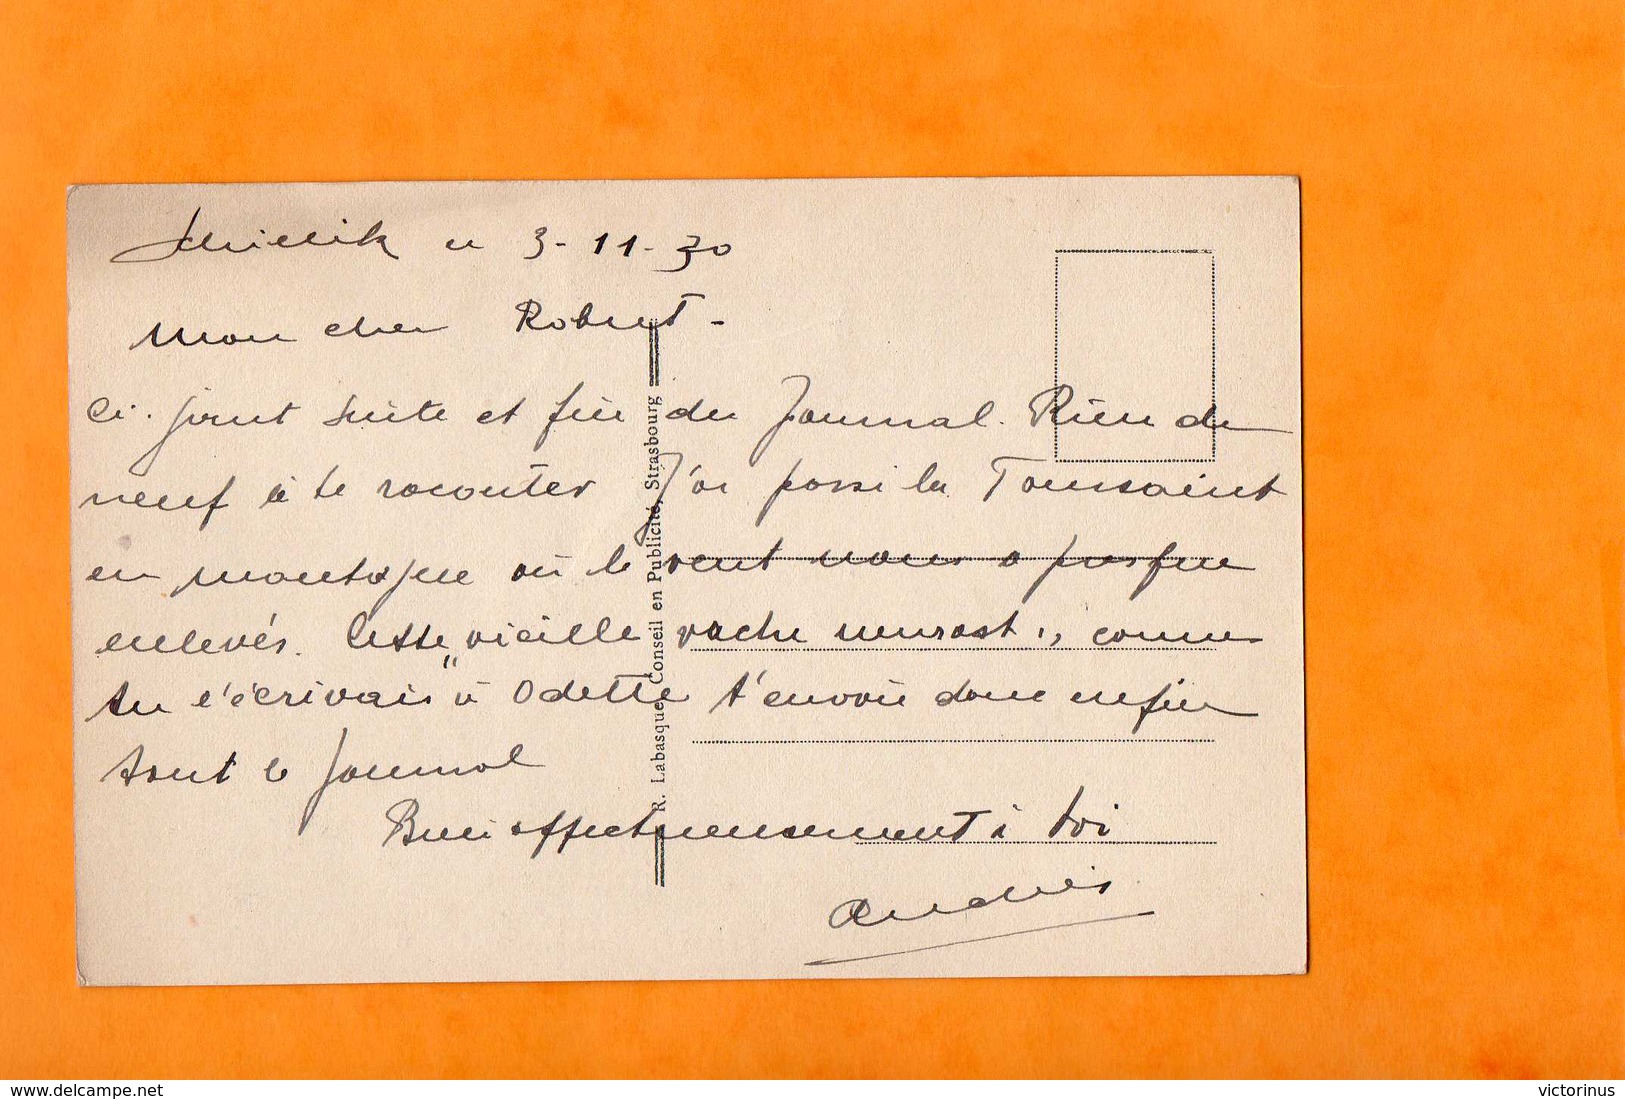 le 3-11-30
Mon cher Robert -
Ci-joint suite et fin du Journal. Rien de
neuf à te raconter J'ai passé la Toussaint
en montagne où le vent nous a presque
enlevés. Cette "vieille vache neurast", comme
tu l'écrivais à Odette t'envoie donc enfin
tout le Journal
Bien affectueusement à toi
André
R. Labasque, Conseil en Publicité, Strasbourg
delcampe.net
victorinus